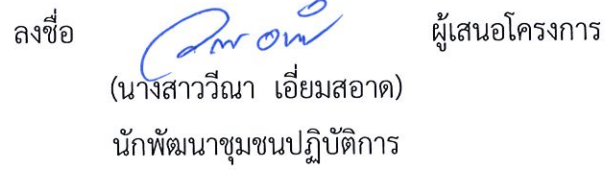 ลงชื่อ ผู้เสนอโครงการ
(นางสาววีณา เอี่ยมสอาด)
นักพัฒนาชุมชนปฏิบัติการ